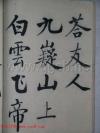 答友人
九嶷山上
白雲飞帝